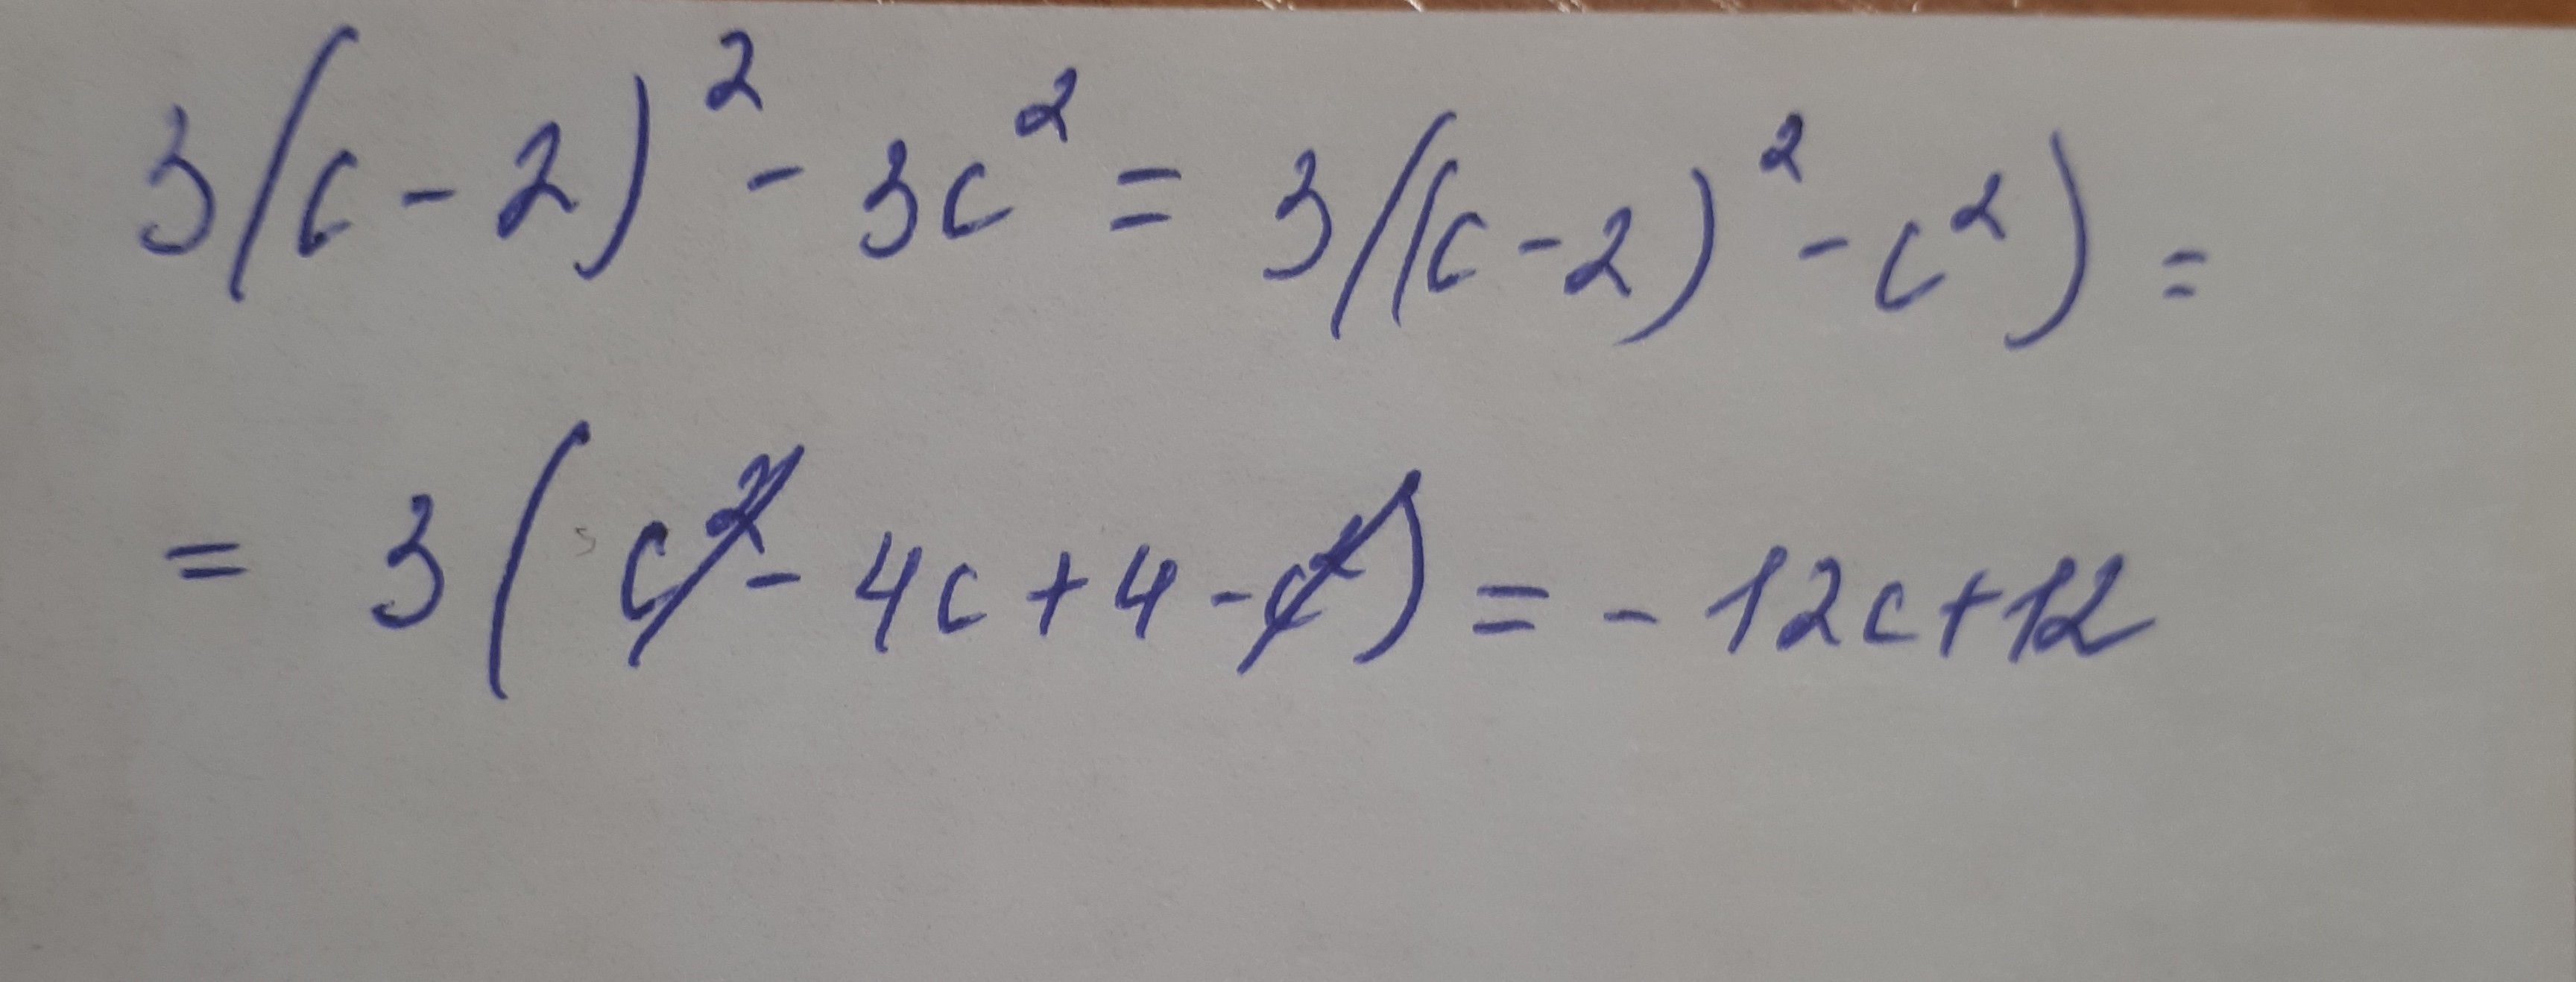 3(c-2)² - 3c² = 3((c-2)² - c²) =
= 3(c² - 4c + 4 - c²) = - 12c + 12